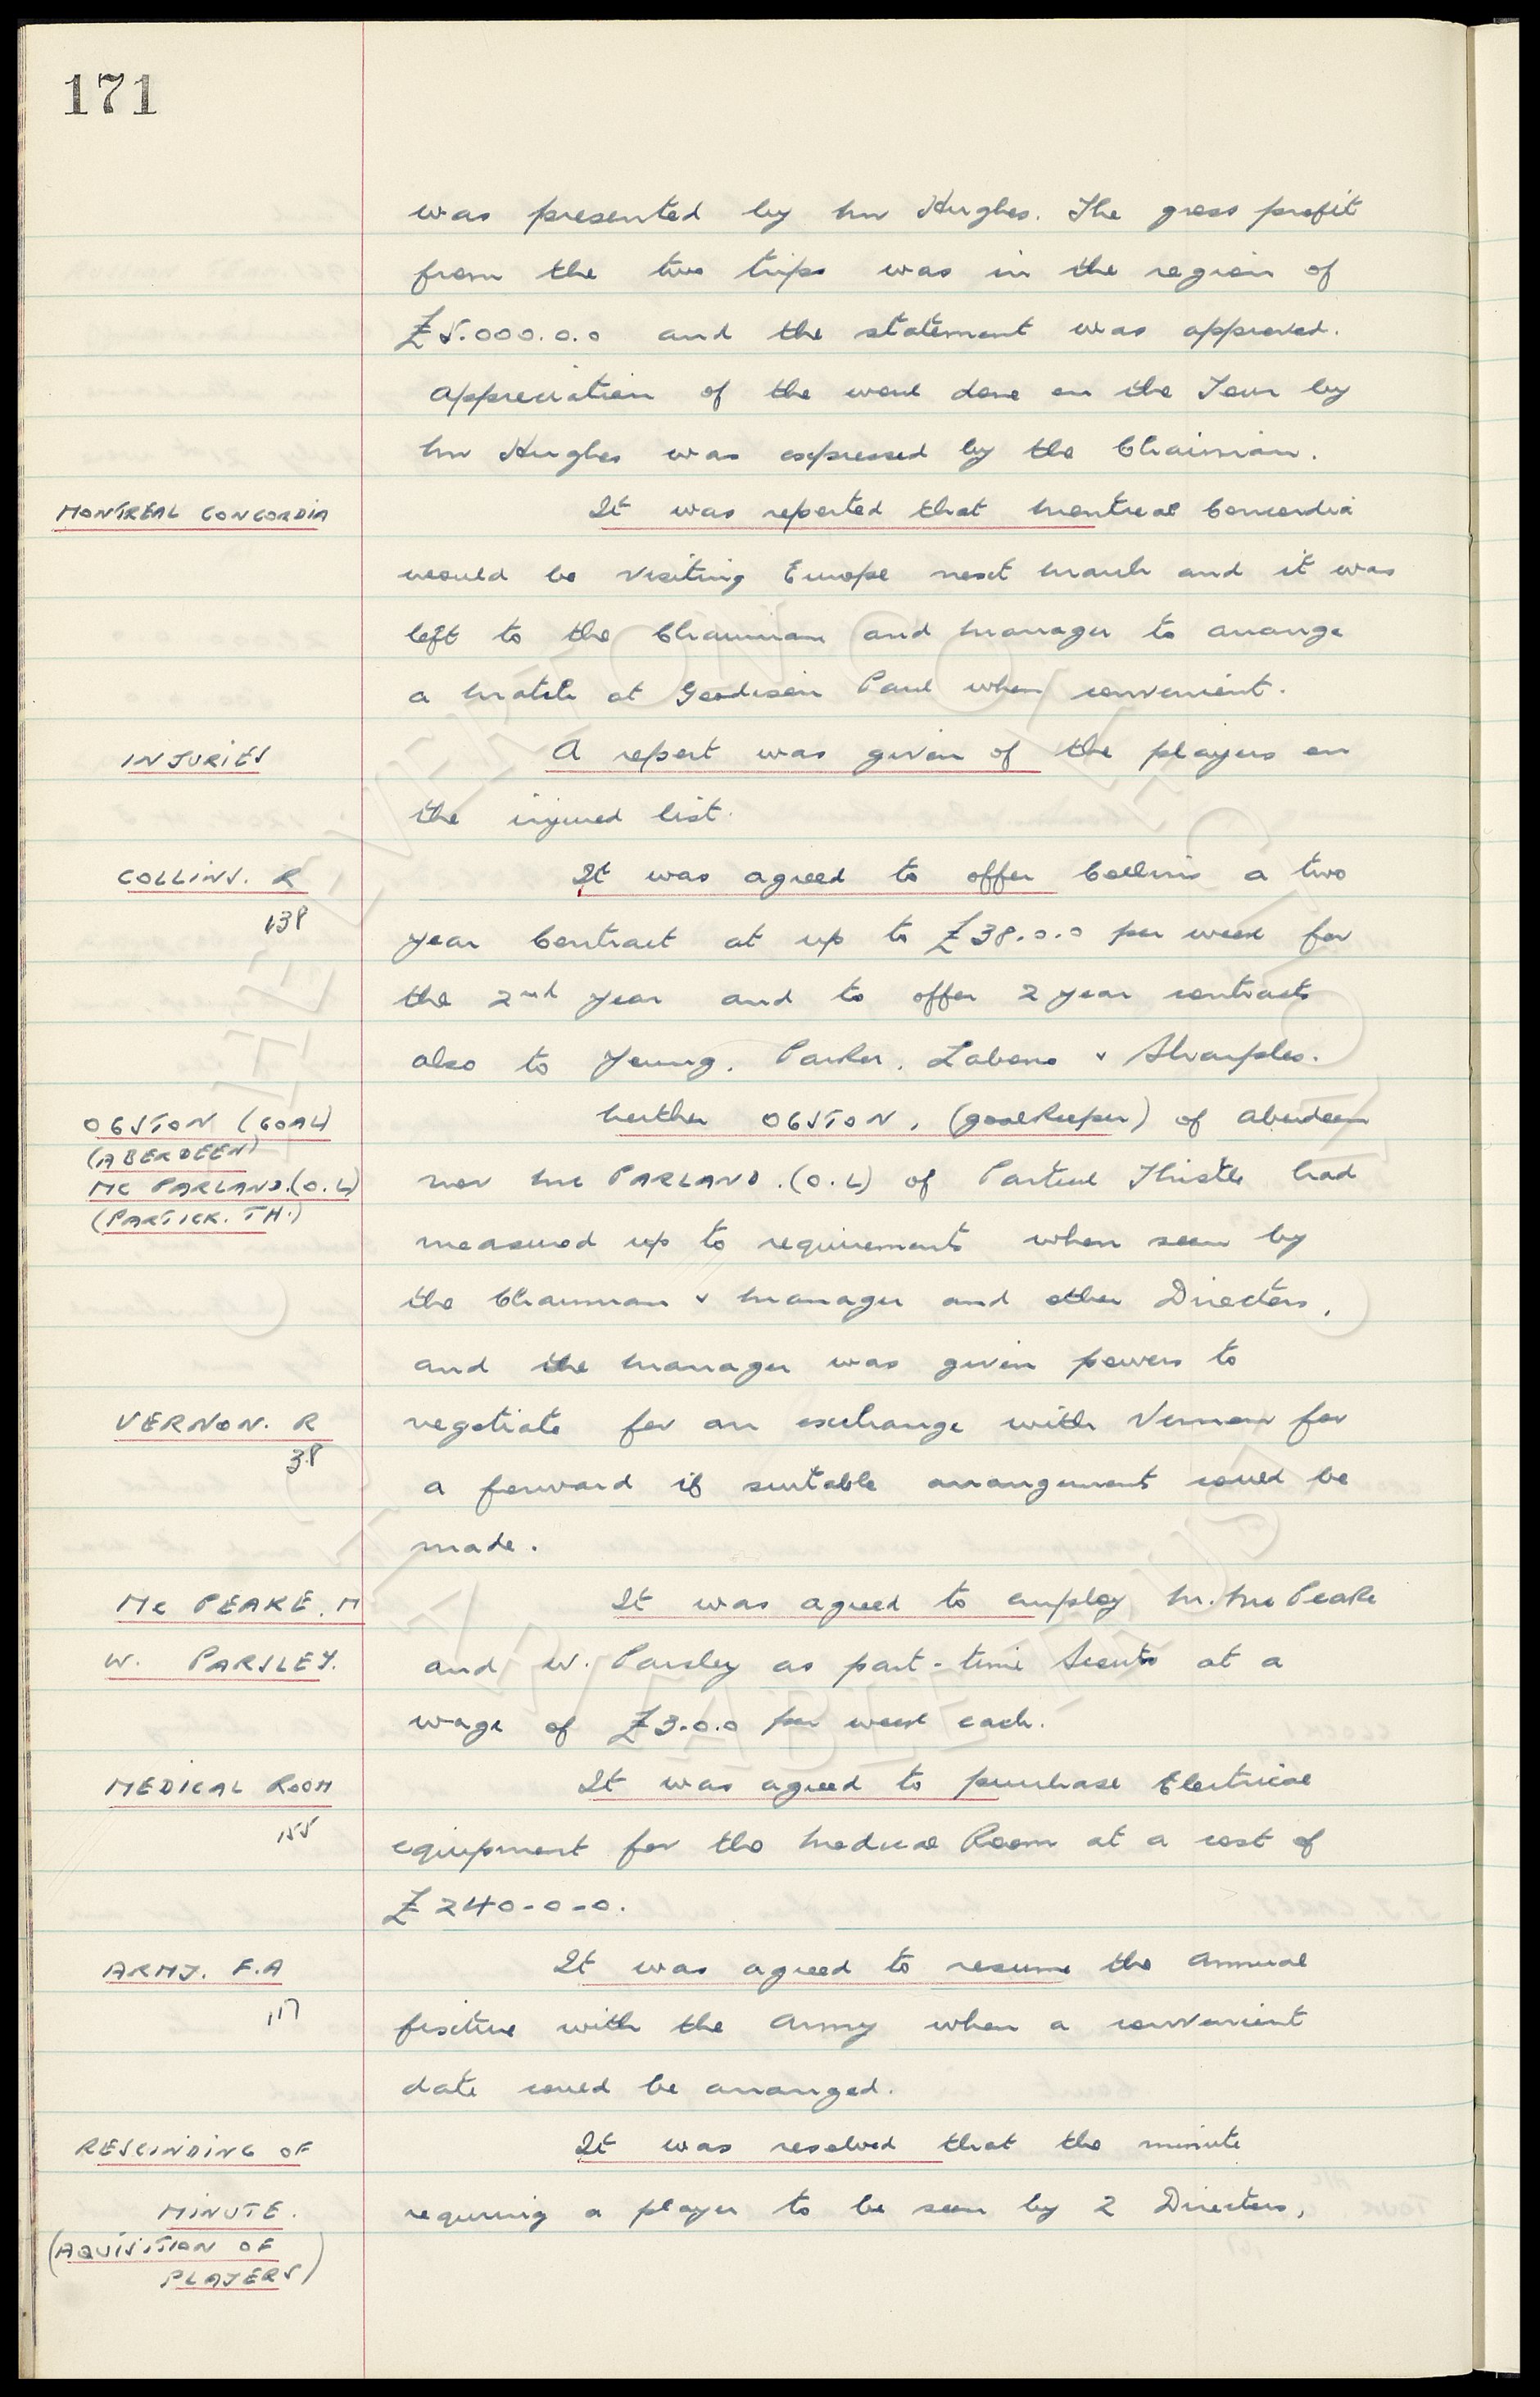 171
was presented by Mr Hughes. The gross profit
from the two trips was in the region of
£5.000.0.0 and the statement was approved.
Appreciation of the work done on the Tour by
Mr Hughes was expressed by the Chairman.
MONTREAL CONCORDIA
It was reported that Montreal Concordia
would be visiting Europe next March and it was
left to the Chairman and Manager to arrange
a Match at Goodison Park when convenient.
INJURIES
A report was given of the players on
the injured list.
COLLINS. R
138
It was agreed to offer Collins a two
year Contract at up to £38.0.0 per week for
the 2nd year and to offer 2 year contracts
also to Young, Parker, Labone & Sharples.
OGSTON (GOAL)
(ABERDEEN)
Mc PARLAND.(O.L)
(PARTICK. TH.)
Neither OGSTON, (goalkeeper) of Aberdeen
nor Mc PARLAND.(O.L) of Partick Thistle had
measured up to requirements when seen by
the Chairman & Manager and other Directors,
and the Manager was given powers to
VERNON. R
38
negotiate for an exchange with Vernon for
a forward if suitable arrangement could be
made.
Mc PEAKE. M
W. PARSLEY.
It was agreed to employ M. Mc Peake
and W. Parsley as part-time Scouts at a
wage of £3.0.0 per week each.
MEDICAL ROOM
155
It was agreed to purchase Electrical
equipment for the Medical Room at a cost of
£240-0-0.
ARMY. F.A
117
It was agreed to resume the Annual
fixture with the Army when a convenient
date could be arranged.
RESCINDING OF
MINUTE.
(AQUISITION OF
PLAYERS)
It was resolved that the minute
requiring a player to be seen by 2 Directors,